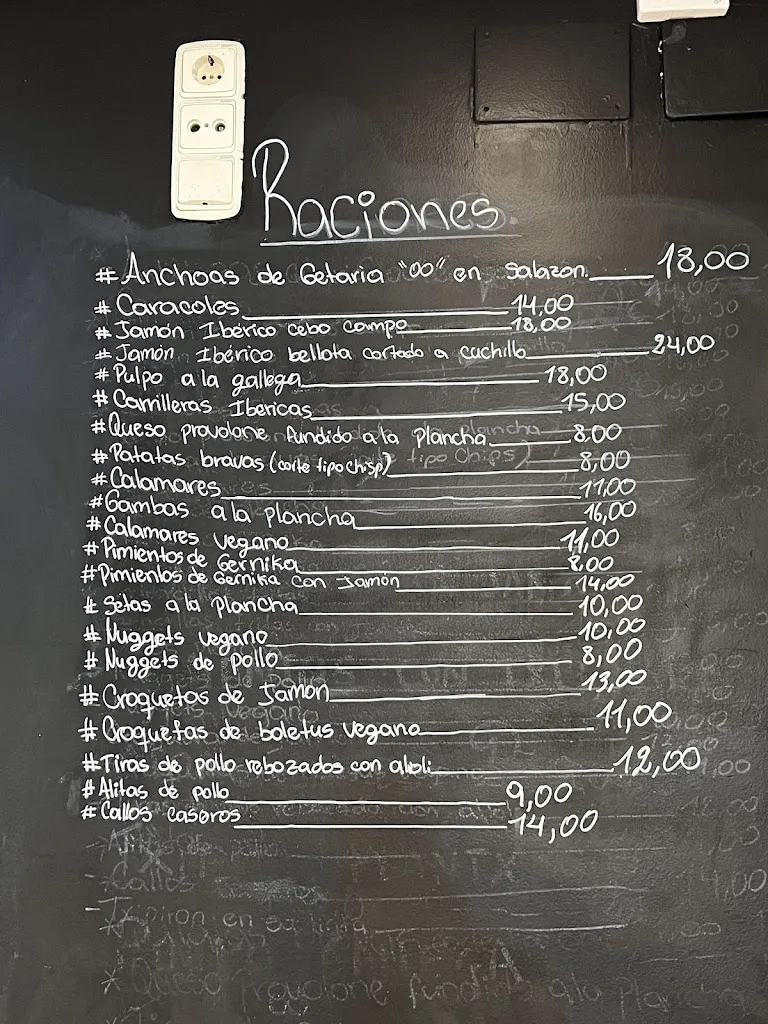 Raciones.
# Anchoas de Getaria "00" en salazon. 18,00
# Caracoles 14,00
# Jamón Ibérico cebo campo 18,00
# Jamón Ibérico bellota cortado a cuchillo 24,00
# Pulpo a la gallega 18,00
# Carrilleras Ibericas 15,00
# Queso provolone fundido a la plancha 8,00
# Patatas bravas (corte tipo chisp) 8,00
# Calamares 11,00
# Gambas a la plancha 16,00
# Calamares vegano 11,00
# Pimientos de Gernika 8,00
# Pimientos de Gernika con Jamón 14,00
# Setas a la plancha 10,00
# Nuggets vegano 10,00
# Nuggets de pollo 8,00
# Croquetas de Jamon 13,00
# Croquetas de boletus vegano 11,00
# Tiras de pollo rebozados con alioli 12,00
# Alitas de pollo 9,00
# Callos caseros 14,00
* Queso provolone fundido a la plancha